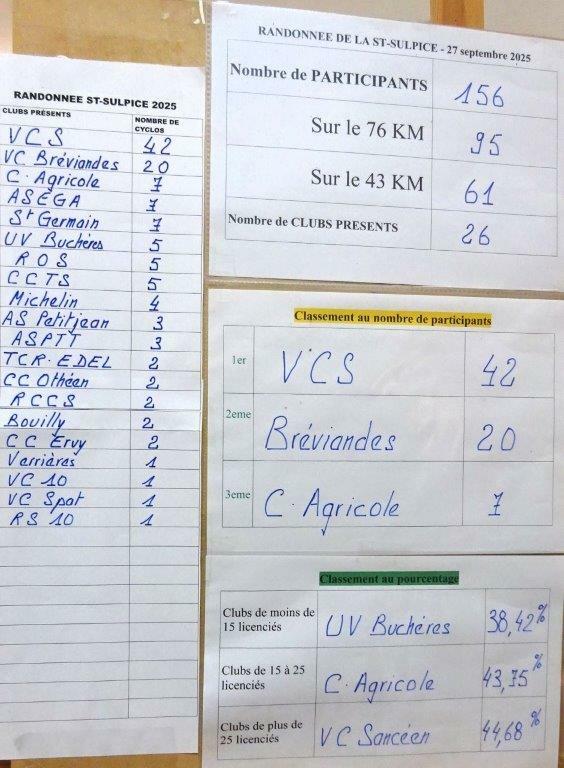 RANDONNEE ST-SULPICE 2025
CLUBS PRÉSENTS NOMBRE DE CYCLOS
VCS 42
VC Bréviandes 20
C. Agricole 7
ASEGA 7
St Germain 7
UV Buchères 5
ROS 5
CCTS 5
Michelin 4
AS Petitjean 3
ASPTT 3
TCR. EDEL 2
CC Othéen 2
RCCS 2
Bouilly 2
CC Ervy 2
Verrières 1
VC 10 1
VC Spot 1
RS 10 1
RANDONNEE DE LA ST-SULPICE - 27 septembre 2025
Nombre de PARTICIPANTS 156
Sur le 76 KM 95
Sur le 43 KM 61
Nombre de CLUBS PRESENTS 26
Classement au nombre de participants
1er VCS 42
2eme Bréviandes 20
3eme C. Agricole 7
Classement au pourcentage
Clubs de moins de 15 licenciés UV Buchères 38,42%
Clubs de 15 à 25 licenciés C. Agricole 43,75%
Clubs de plus de 25 licenciés VC Sancéen 44,68%